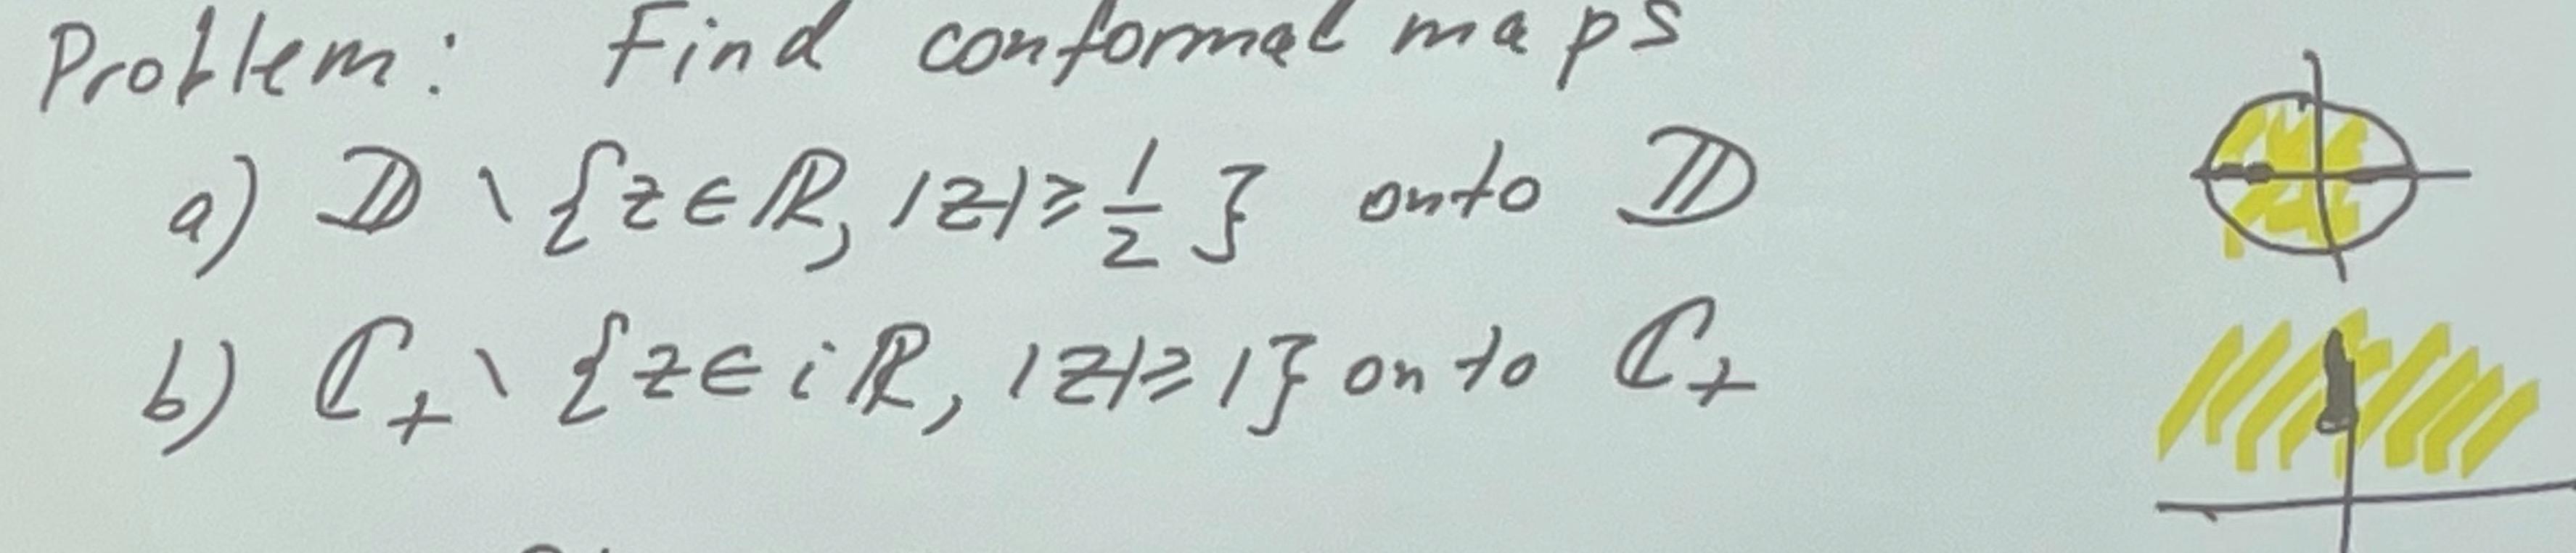 Problem: Find conformal maps
a) 𝔻 \ {z∈ℝ, |z|≥ 1/2} onto 𝔻
b) ℂ₊ \ {z∈iℝ, |z|≥1} onto ℂ₊